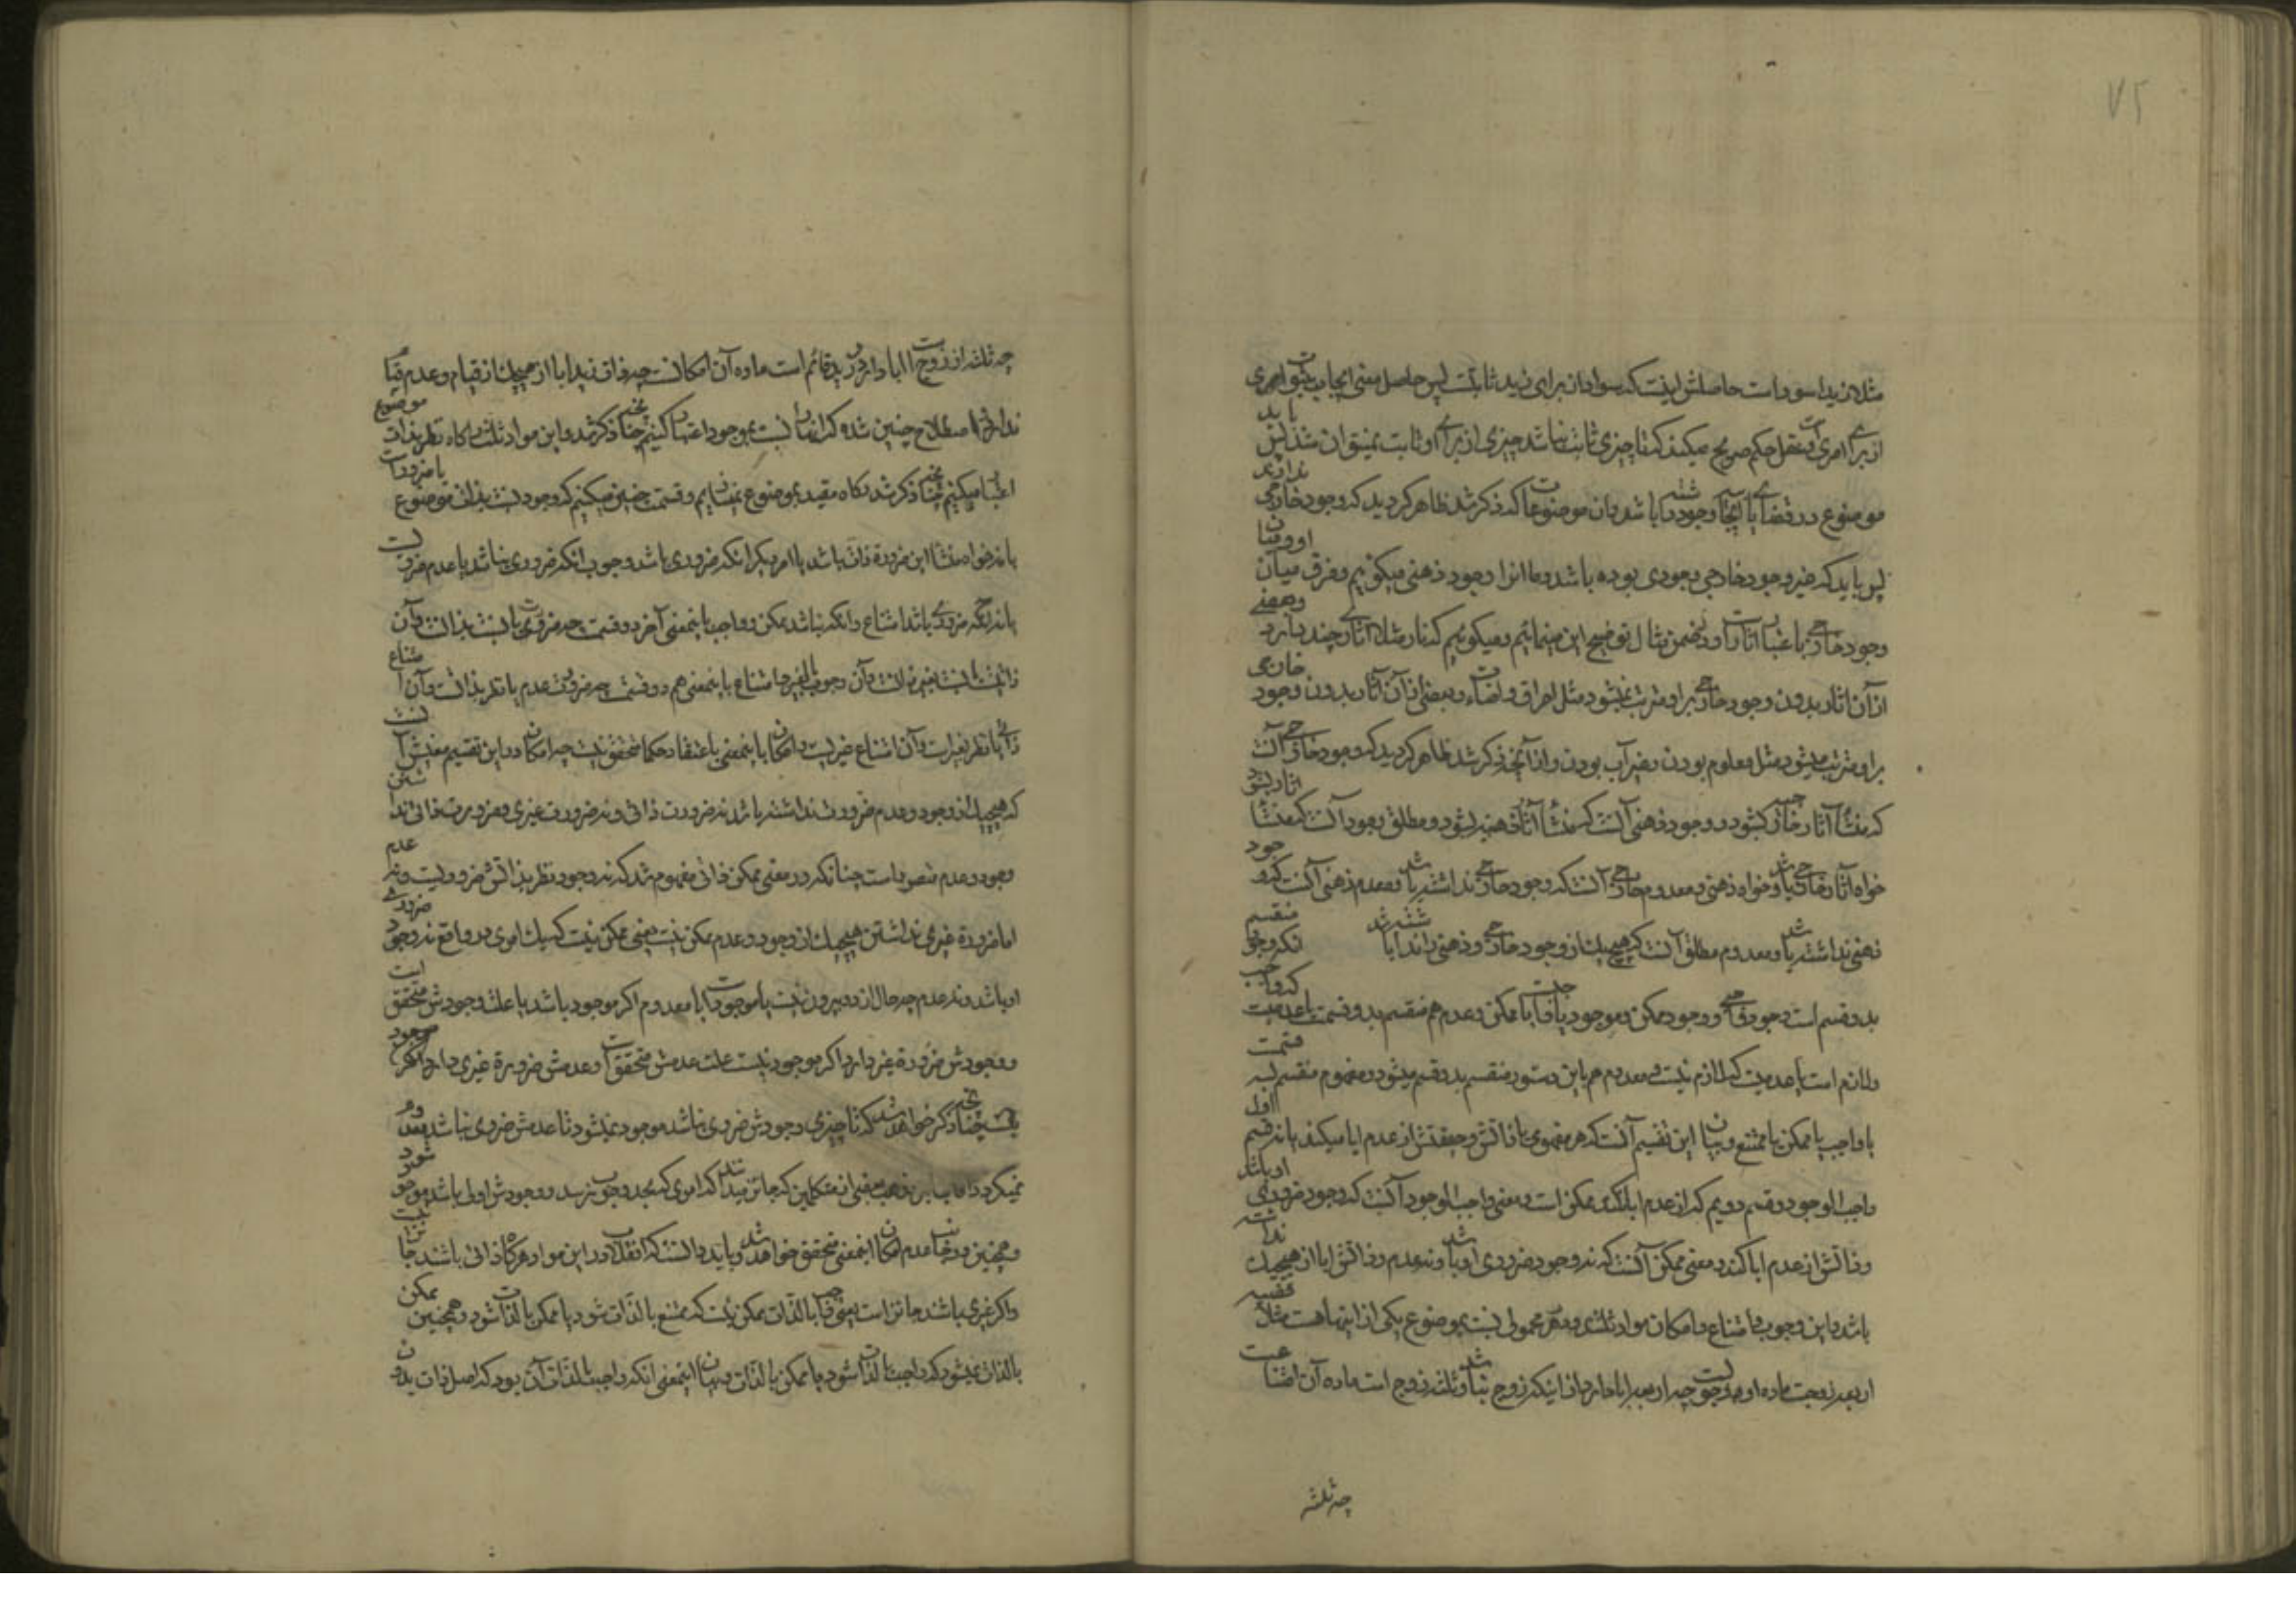 ۷۵
مثلا زید اسود است حاصلش اینست که سواد از برای زید ثابتست پس حاصل معنی ایجاب ثبوت امری
از برای امری است و عقل حکم صریح میکند که تا چیزی ثابت نباشد چیزی از برای او ثابت نمیتواند شد پس باید
موضوع در قضایای ایجابی وجود داشته باشد و آن موضوعات که ذکر شد ظاهر گردید که وجود خارجی ندارند
پس باید که غیر وجود خارجی وجودی بوده باشد و ما انرا وجود ذهنی میگوئیم و فرق میان او و میان
وجود خارجی باعتبار اثار است و در ضمن مثال توضیح این مینمائیم و میگوئیم که نار مثلا آثار چند دارد و بعضی
از آن اثار بدون وجود خارجی بر او مترتب نمیشود مثل احراق و اضاءت و بعضی از آن آثار بدون وجود خارجی
بر او مترتب میشود مثل معلوم بودن و غیر آب بودن و از آنچه ذکر شد ظاهر گردید که وجود خارجی آنست
که منشأ آثار خارجی شود و وجود ذهنی آنست که منشأ آثار ذهنیه شود و مطلق وجود آنست که منشأ اثار شود
خواه آثار خارجی باشد و خواه ذهنی و معدوم خارجی آنست که وجود خارجی نداشته باشد و معدوم ذهنی آنست که وجود
ذهنی نداشته باشد و معدوم مطلق آنست که هیچیک از وجود خارجی و ذهنی را نداشته باشد انکه وجود منقسم
بدو قسم است وجود واجبی و وجود ممکن و موجود یا واجبست یا ممکن و عدم هم منقسم بدو قسمست یا عدمیست که واجب
و لازم است یا عدمیست که لازم نیست و معدوم هم باین دستور منقسم بدو قسم میشود و مفهوم منقسم بسه قسمت
یا واجب یا ممکن یا ممتنع و بیان این تقسیم آنست که هر مفهومی یا ذاتش و حقیقتش از عدم ابا میکند یا نه قسم اول
واجب الوجود و قسم دویم که از عدم ابا نکند ممکن است و معنی واجب الوجود آنست که وجود ضروری او باشد
و ذاتش از عدم ابا کند و معنی ممکن آنست که نه وجود ضروری او باشد و نه عدم و ذاتش ابا از هیچیک نداشته
باشد و این وجوب و امتناع و امکان مواد ثلثند و هر محمولی نسبت بموضوع یکی از اینها هست مثلا قضیه
اربعه زوجست ماده او وجوبست چه اربعه ابا دارد از اینکه زوج نباشد و ثلثه زوج است ماده آن امتناعست
چه ثلثه
چه ثلثه از زوجیت ابا دارد و زید قائم است ماده آن امکانست چه ذات زید ابا از هیچیک از قیام و عدم قیام
ندارد و اصطلاح چنین شده که انها را نسبت بموجود اعتبار کنیم چنانچه ذکر شد و این مواد ثلث را گاه نظر بذات موضوع
اعتبار میکنیم چنانچه ذکر شد و گاه مقید بموضوع نمینمائیم و قسمت چنین میکنیم که وجود نسبت بذات موضوع یا ضروریست
یا نه خواه منشأ این ضرورة ذات باشد یا امر دیگر انکه ضروری باشد وجوب انکه ضروری نباشد یا عدم ضروریست
یا نه انکه ضروری باشد امتناع و انکه نباشد ممکن و واجب باینمعنی آخر دو قسمت چه ضرورت یا نسبت بذاتست و آن
ذاتیست یا نسبت بغیر ذاتست و آن وجوب بالغیر و امتناع باینمعنی هم دو قسمت چه ضرورت عدم یا نظر بذاتست و آن امتناع
ذاتی یا نظر بغیر است و آن امتناع غیریست و امکان باینمعنی باعتقاد حکما متحقق نیست چه امکان در این تقسیم معنیش آنست
که هیچیک از وجود و عدم ضرورت نداشته باشد نه ضرورت ذاتی و نه ضرورت غیری و ضرورت ذاتی نداشتن
وجود و عدم متصور است چنانکه در معنی ممکن ذاتی مفهوم شد که نه وجود نظر بذاتش ضروریست و نه عدم
اما ضرورة غیری نداشتن هیچیک از وجود و عدم ممکن نیست یعنی ممکن نیست که یک امری در واقع نه وجود ضروری
او باشد و نه عدم چه حال از دو بیرون نیست یا موجود است یا معدوم اگر موجود باشد یا علت وجودش متحقق است
و وجودش ضرورة غیر دارد اگر موجود نیست علت عدمش متحقق است و عدمش ضرورة غیری دارد
چنانچه ذکر خواهد شد که تا چیزی وجودش ضروری نباشد موجود نمیشود و تا عدمش ضروری نباشد معدوم
نمیگردد اما بر مذهب بعضی از متکلمین که جائز میدانند که امری که بحد وجوب نرسد و وجودش اولی باشد موجود شود
و همچنین در جانب عدم امکان اینمعنی متحقق خواهد شد و باید دانست که انقلاب در این مواد هرگاه ذاتی باشند جائز نیست
و اگر غیری باشند جائز است یعنی واجب بالذات ممکن نیست که ممتنع بالذات شود یا ممکن بالذات شود و همچنین ممکن
بالذات نمیشود که واجب بالذات شود یا ممکن بالذات و بیان اینمعنی انکه واجب بالذات آن بود که اصل ذات بدون